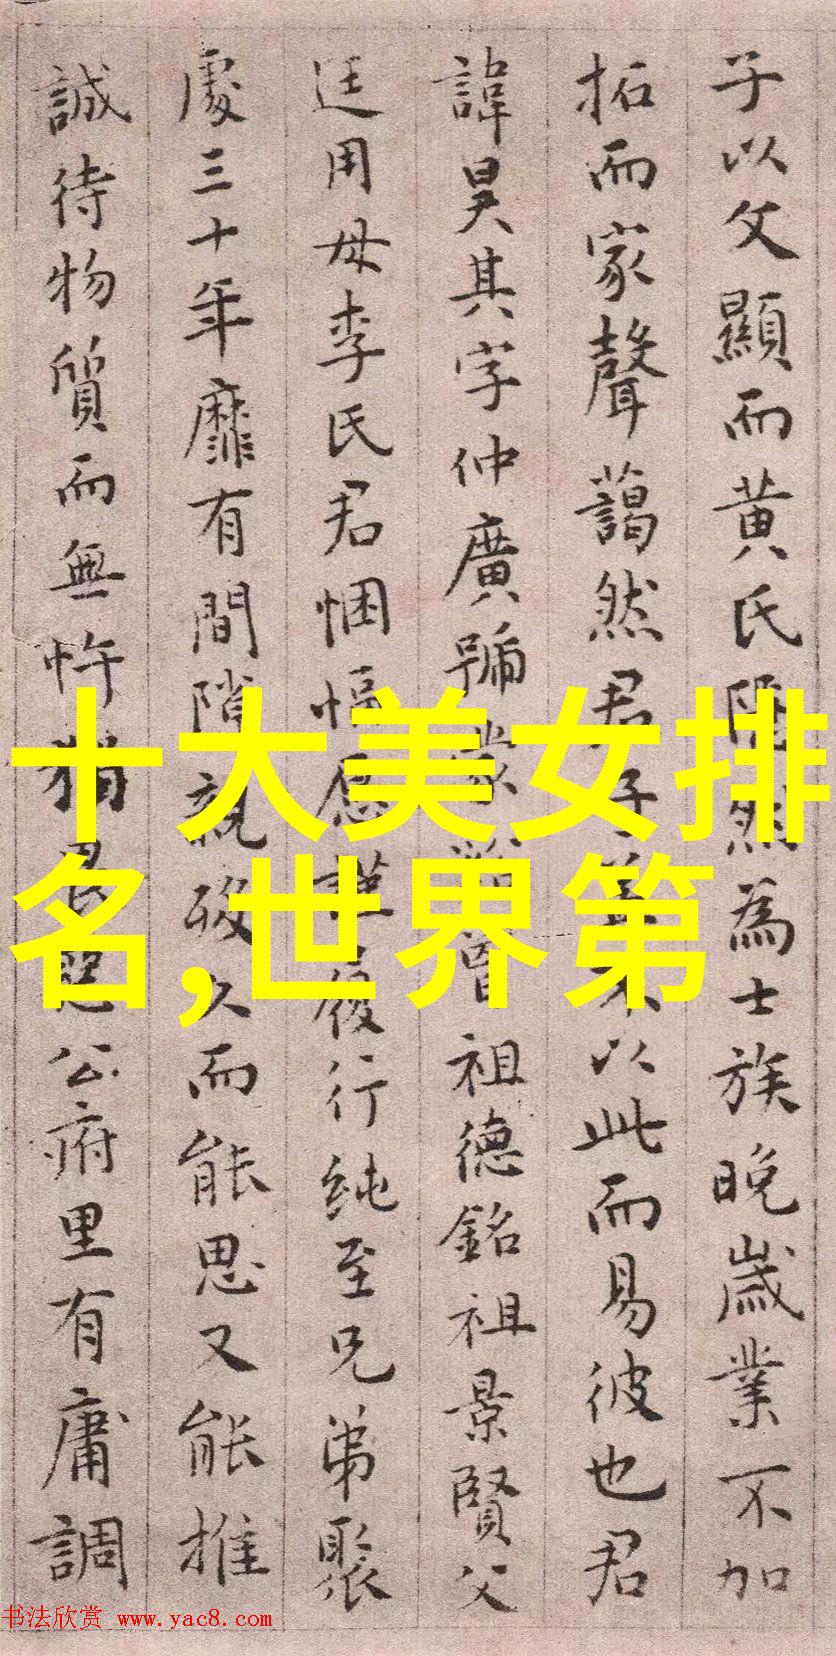 子以父顯而黄氏隠然為士族晚歲業不加
拓而家聲藹然君子不以此而易彼也君
諱昊其字仲廣號曾祖德銘祖景賢父
廷用母李氏君悃愊愿謹履行純至兄弟聚
處三十年靡有間隙親歿久而能思又能推
誠待物質而無忤猶畏慝公府里有庸調
十大美女排
名,世界第
书法欣赏 www.yac8.com